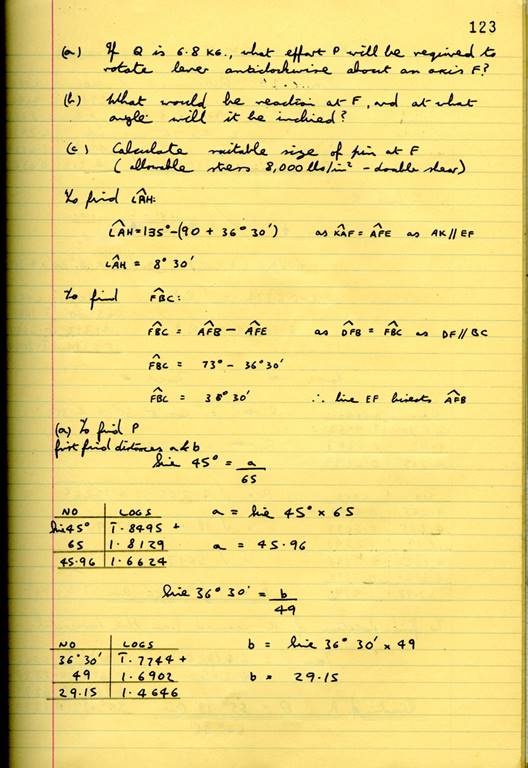 123
(a) If Q is 6.8 KG., what effort P will be required to
rotate lever anticlockwise about an axis F?
(b) What would be reaction at F, and at what
angle will it be inclined?
(c) Calculate suitable size of pin at F
(allowable stress 8,000 lbs/in² - double shear)
To find LÂH:
LÂH = 135° - (90 + 36° 30') as KÂF = AF̂E as AK // EF
LÂH = 8° 30'
To find FB̂C:
FB̂C = AF̂B - AF̂E as DF̂B = FB̂C as DF // BC
FB̂C = 73° - 36° 30'
FB̂C = 36° 30' ∴ line EF bisects AF̂B
(a) To find P
first find distances a & b
Sine 45° = a/65
NO LOGS a = Sine 45° × 65
Sin 45° 1̄.8495 +
65 1.8129 a = 45.96
45.96 1.6624
Sine 36° 30' = b/49
NO LOGS b = Sine 36° 30' × 49
36° 30' 1̄.7744 +
49 1.6902 b = 29.15
29.15 1.4646